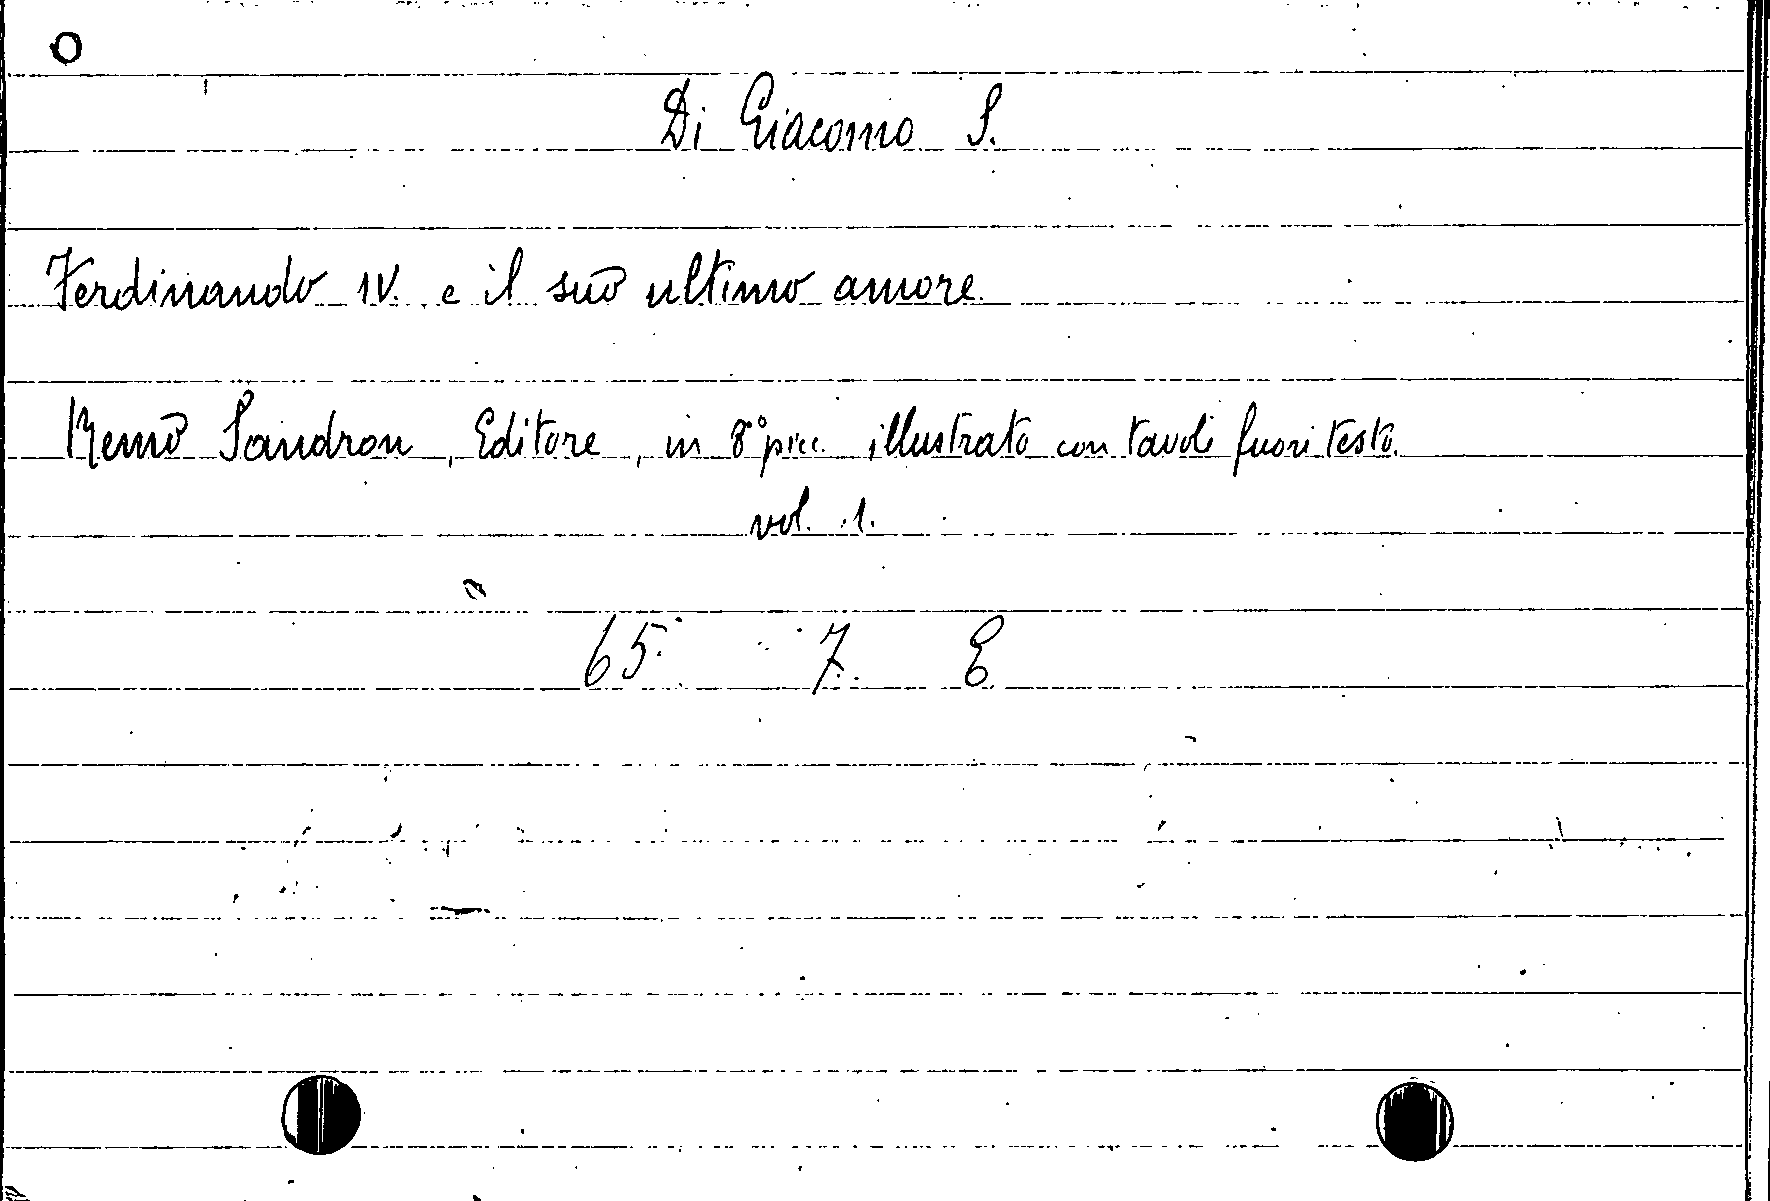 Di Giacomo S.
Ferdinando IV. e il suo ultimo amore
Remo Sandron, Editore, in 8° picc. illustrato con tavole fuori testo.
vol. 1.
65. 7. E